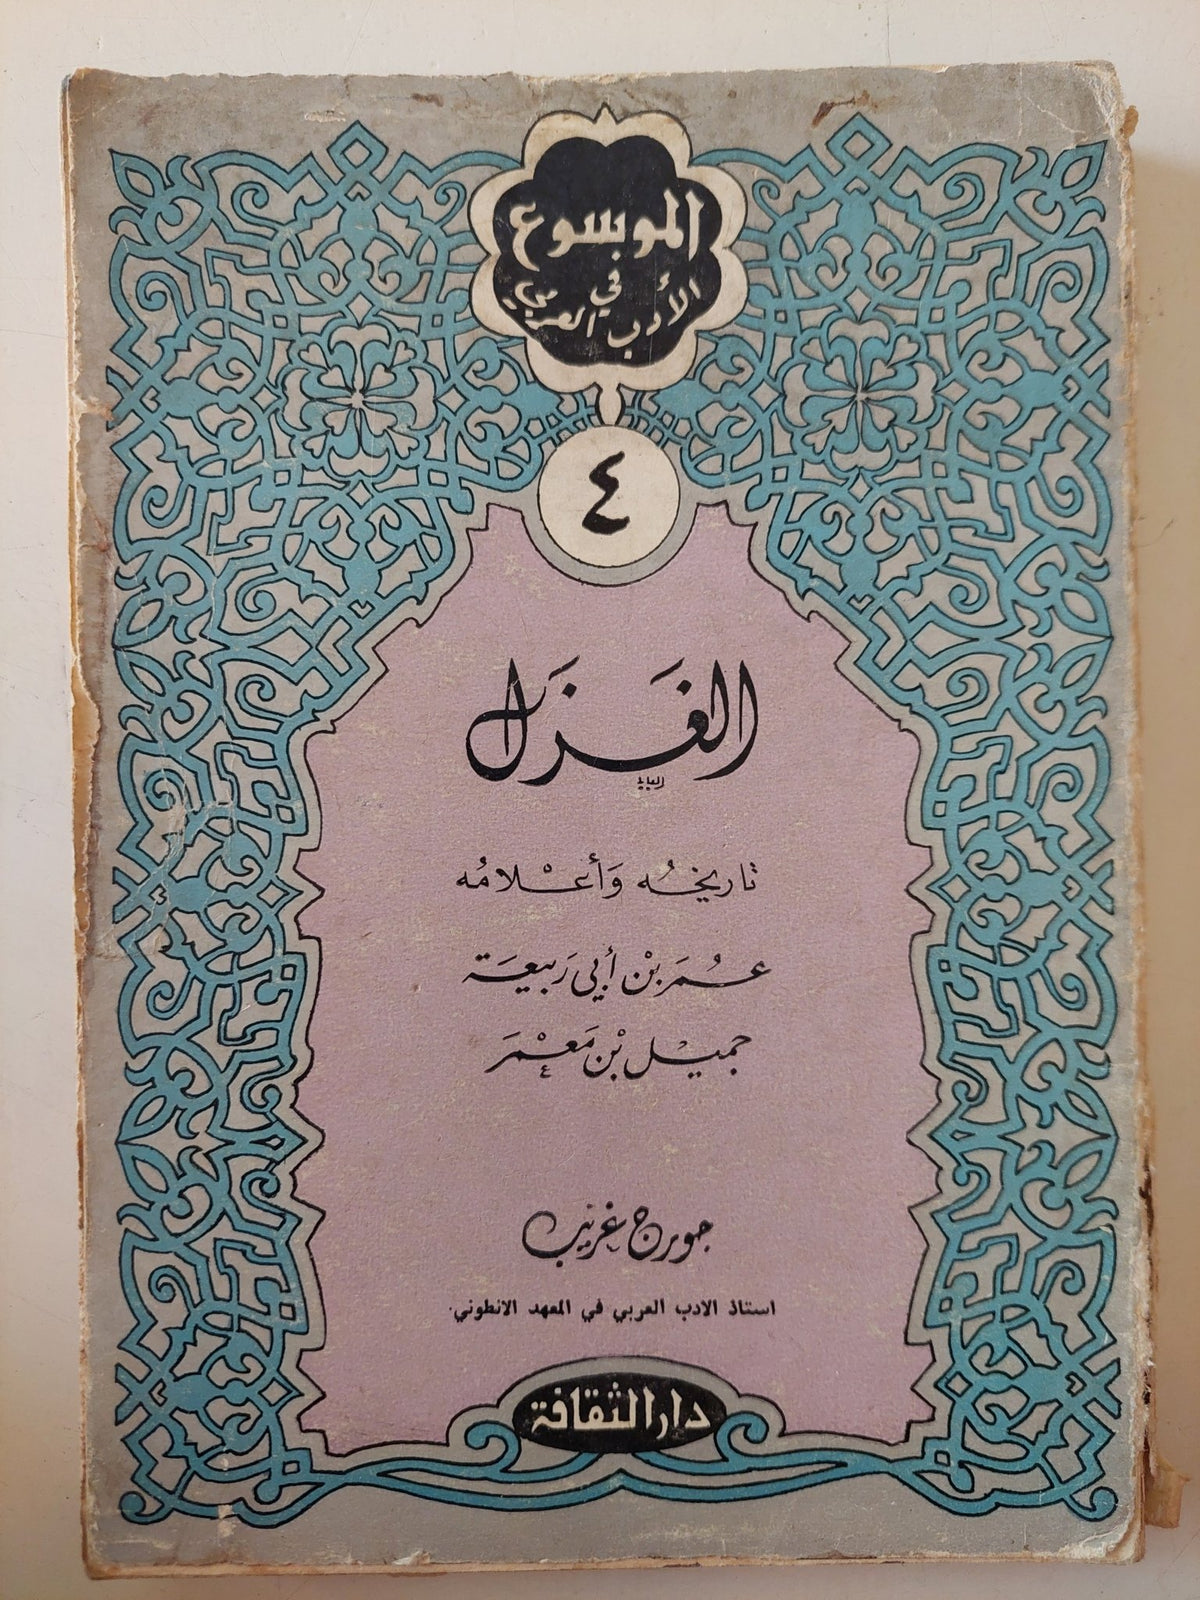 الموسوع
في
الأدب العربي
٤
الغَزَل
تاريخُه وَأعْلامُه
عُمَر بْن أبي رَبيعَة
جميْل بْن مَعْمَر
جورج غريّب
استاذ الادب العربي في المعهد الانطوني.
دار الثقافة